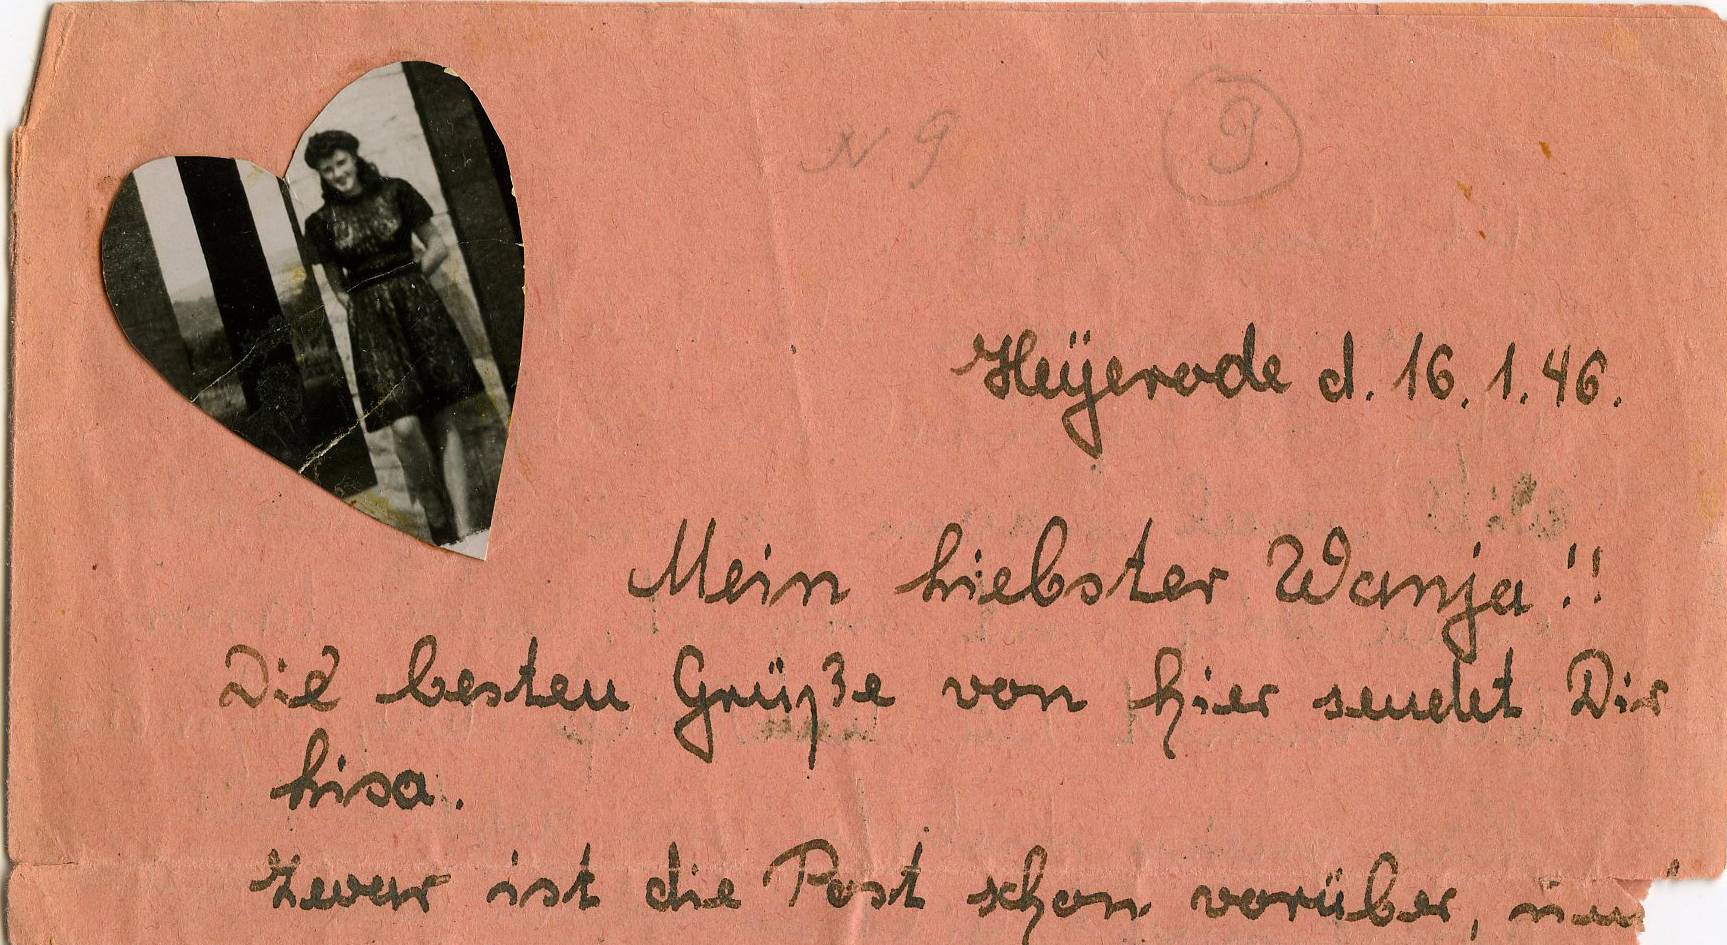 N 9
9
Heÿerode d. 16.1.46.
Mein Liebster Wanja!!
Die besten Grüße von hier sendet Dir
Lisa.
Zwar ist die Post schon vorüber,